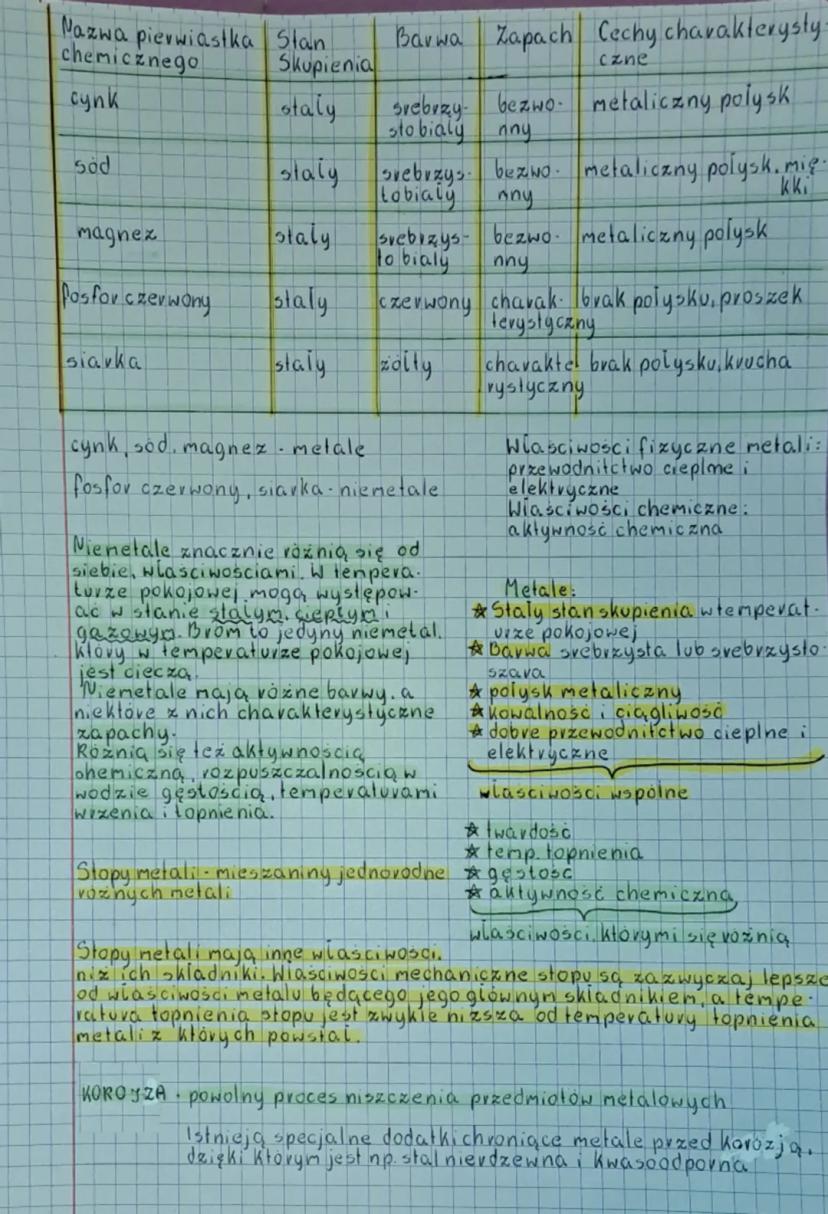 Nazwa pierwiastka chemicznego | Stan Skupienia | Barwa | Zapach | Cechy charakterysty-czne
cynk | stały | srebrzy-stobiały | bezwo-nny | metaliczny połysk
sód | stały | srebrzys-tobiały | bezwo-nny | metaliczny połysk, mię-kki
magnez | stały | srebrzys-tobiały | bezwo-nny | metaliczny połysk
fosfor czerwony | stały | czerwony | charak-terystyczny | brak połysku, proszek
siarka | stały | żółty | charakte rystyczny | brak połysku, krucha
cynk, sód, magnez - metale
fosfor czerwony, siarka - niemetale
Właściwości fizyczne metali:
przewodnitctwo cieplne i
elektryczne
Właściwości chemiczne:
aktywność chemiczna
Niemetale znacznie różnią się od
siebie, właściwościami. W tempera-
turze pokojowej mogą występow-
ać w stanie stałym, ciepłym i
gazowym. Brom to jedyny niemetal,
który w temperaturze pokojowej
jest cieczą.
Niemetale mają różne barwy, a
niektóre z nich charakterystyczne
zapachy.
Różnią się też aktywnością
chemiczną, rozpuszczalnością w
wodzie gęstością, temperaturami
wrzenia i topnienia.
Metale:
☆ Stały stan skupienia w temperat-
urze pokojowej
☆ Barwa srebrzysta lub srebrzysto-
szara
☆ połysk metaliczny
☆ kowalność i ciągliwość
☆ dobre przewodnitctwo cieplne i
elektryczne
właściwości wspólne
☆ twardość
☆ temp. topnienia
☆ gęstość
☆ aktywność chemiczna
właściwości, którymi się różnią
Stopy metali - mieszaniny jednorodne
różnych metali
Stopy metali mają inne właściwości,
niż ich składniki. Właściwości mechaniczne stopu są zazwyczaj lepsze
od właściwości metalu będącego jego głównym składnikiem, a tempe-
ratura topnienia stopu jest zwykle niższa od temperatury topnienia
metali z których powstał.
KOROZJA - powolny proces niszczenia przedmiotów metalowych
Istnieją specjalne dodatki chroniące metale przed korozją,
dzięki którym jest np. stal nierdzewna i kwasoodporna